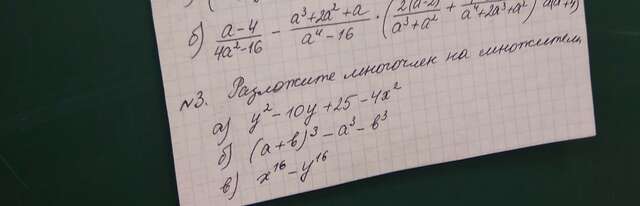 б) (a-4)/(4a²-16) - (a³+2a²+a)/(a⁴-16) · (2(a-2)/(a³+a²) + /(a⁴+2a³+a²))
№3. Разложите многочлен на множители
а) y²-10y+25-4x²
б) (a+b)³-a³-b³
в) x¹⁶-y¹⁶